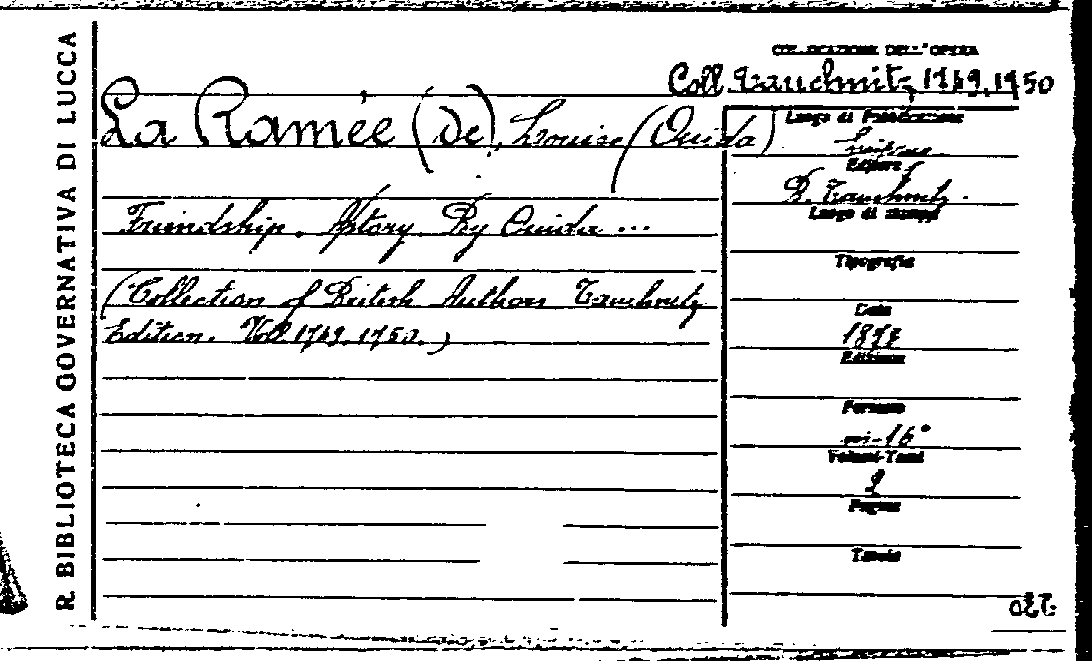 R. BIBLIOTECA GOVERNATIVA DI LUCCA
COLLOCAZIONE DELL'OPERA
Coll. Tauchnitz, 1749.1750
La Ramée (de), Louise (Ouida)
Friendship. A story. By Ouida ...
(Collection of British Authors Tauchnitz
Edition. Voll. 1749. 1750.)
Luogo di Pubblicazione
Editore
B. Tauchnitz.
Luogo di stampa
Tipografia
Data
1878
Edizione
Formato
in-16°
Volumi-Tomi
2
Pagine
Tavole